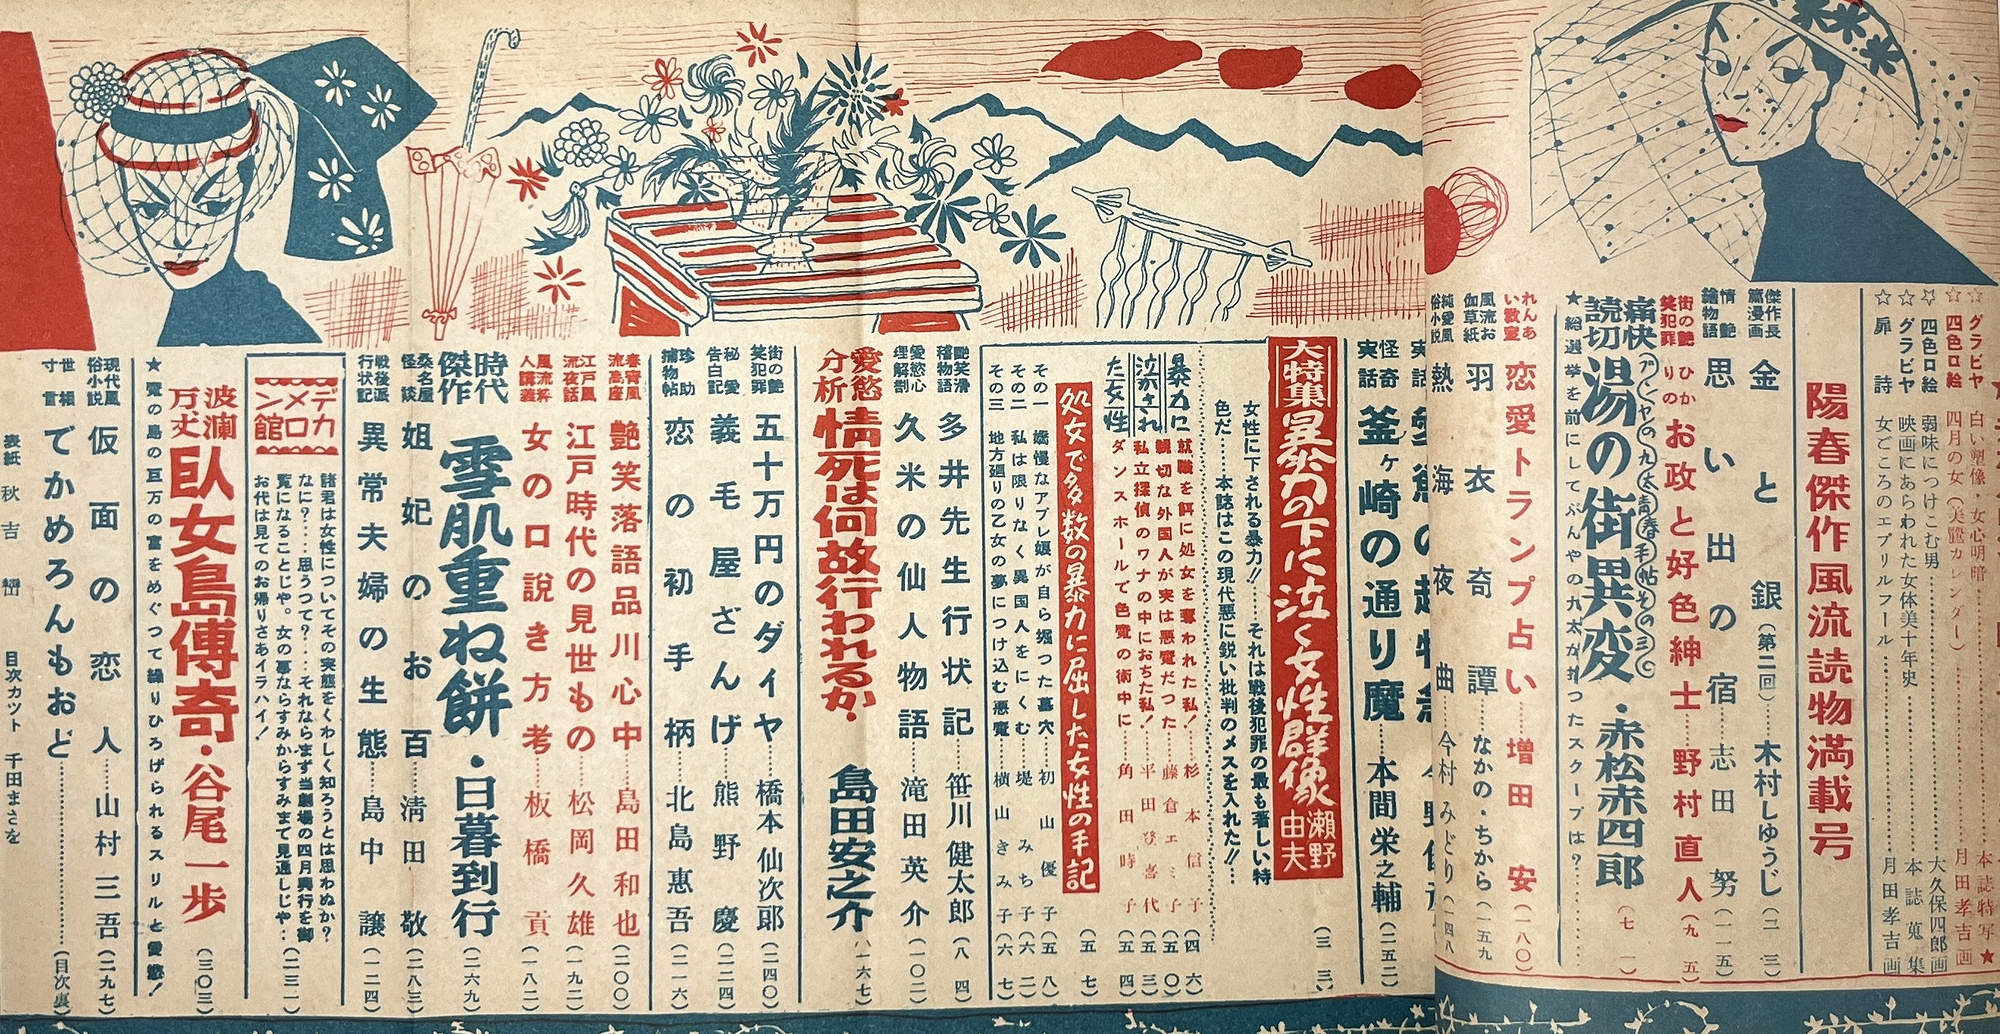 ☆グラビヤ 白い塑像・女心明暗………本誌特写★
☆四色口絵 四月の女(美艶カレンダー)………月田孝吉画
☆四色口絵 弱味につけこむ男………大久保四郎画
☆グラビヤ 映画にあらわれた女体美十年史………本誌蒐集
☆扉詩 女ごころのエプリルフール………月田孝吉画
陽春傑作風流読物満載号
傑作長篇漫画 金と銀(第二回)……木村しゅうじ(二一三)
情艶繪物語 思い出の宿……志田努(一一五)
街の艶笑犯罪 ひかりの お政と好色紳士……野村直人(九五)
痛快読切 アンヤの九太青春手帖その三 湯の街異変・赤松赤四郎(七一)
★総選挙を前にしてぶんやの九太が封つたスクープは?……
れんあい教室 恋愛トランプ占い……増田安(一八〇)
風流お伽草紙 羽衣奇譚……なかの・ちから(一五九
純愛風俗小説 熱海夜曲……今村みどり(一四八
怪奇実話 釜ヶ崎の通り魔……本間栄之輔(二五二)
大特集 暴力の下に泣く女性群像 瀬野由夫(三三)
女性に下される暴力!!……それは戦後犯罪の最も著しい特
色だ……本誌はこの現代悪に鋭い批判のメスを入れた!!
暴力に泣かされた女性
就職を餌に処女を奪われた私!……杉本信子(四六)
親切な外国人が実は悪魔だつた……藤倉エミ子(五〇)
私立探偵のワナの中におちた私!……平田登喜代(五三)
ダンスホールで色魔の術中に……角田時子(五四)
処女で多数の暴力に屈した女性の手記(五七)
その一 嬌慢なアプレ娘が自ら堀つた墓穴…初山優子(五八)
その二 私は限りなく異国人をにくむ…堤みち子(六二)
その三 地方廻りの乙女の夢につけ込む悪魔…横山きみ子(六七)
艶笑滑稽物語 多井先生行状記……笹川健太郎(八四)
愛慾心理解剖 久米の仙人物語……滝田英介(一〇二)
愛慾分析 情死は何故行われるか・島田安之介(一六七)
街の艶笑犯罪 五十万円のダイヤ……橋本仙次郎(二四〇)
秘愛告白記 義毛屋ざんげ……熊野慶(二二四)
珍助捕物帖 恋の初手柄……北島惠吾(二一六)
春宵風流高座 艶笑落語品川心中……島田和也(二〇〇)
江戸風流夜話 江戸時代の見世もの……松岡久雄(一九二)
風流粋人講義 女の口説き方考……板橋貢(一八二)
時代傑作 雪肌重ね餅・日暮到行(二六九)
桑名屋怪談 妲妃のお百……清田敬(二八三)
戦後派行状記 異常夫婦の生態……島中譲(一二四)
デカメロン館
諸君は女性についてその実態をくわしく知ろうとは思わぬか?
なに?……思うつて?……それならまず当劇場の四月興行を御
覧になることじや。女の事ならすみからすみまで見通しじや‥
お代は見てのお帰りさあイラハイ!(二三一)
波瀾万丈 臥女島傳奇・谷尾一歩(三〇三)
★魔の島の巨万の富をめぐつて繰りひろげられるスリルと愛慾!
現代風俗小説 仮面の恋人……山村三吾(二九七)
世相寸言 でかめろんもおど……(目次裏)
表紙 秋吉巒 目次カツト 千田まさを